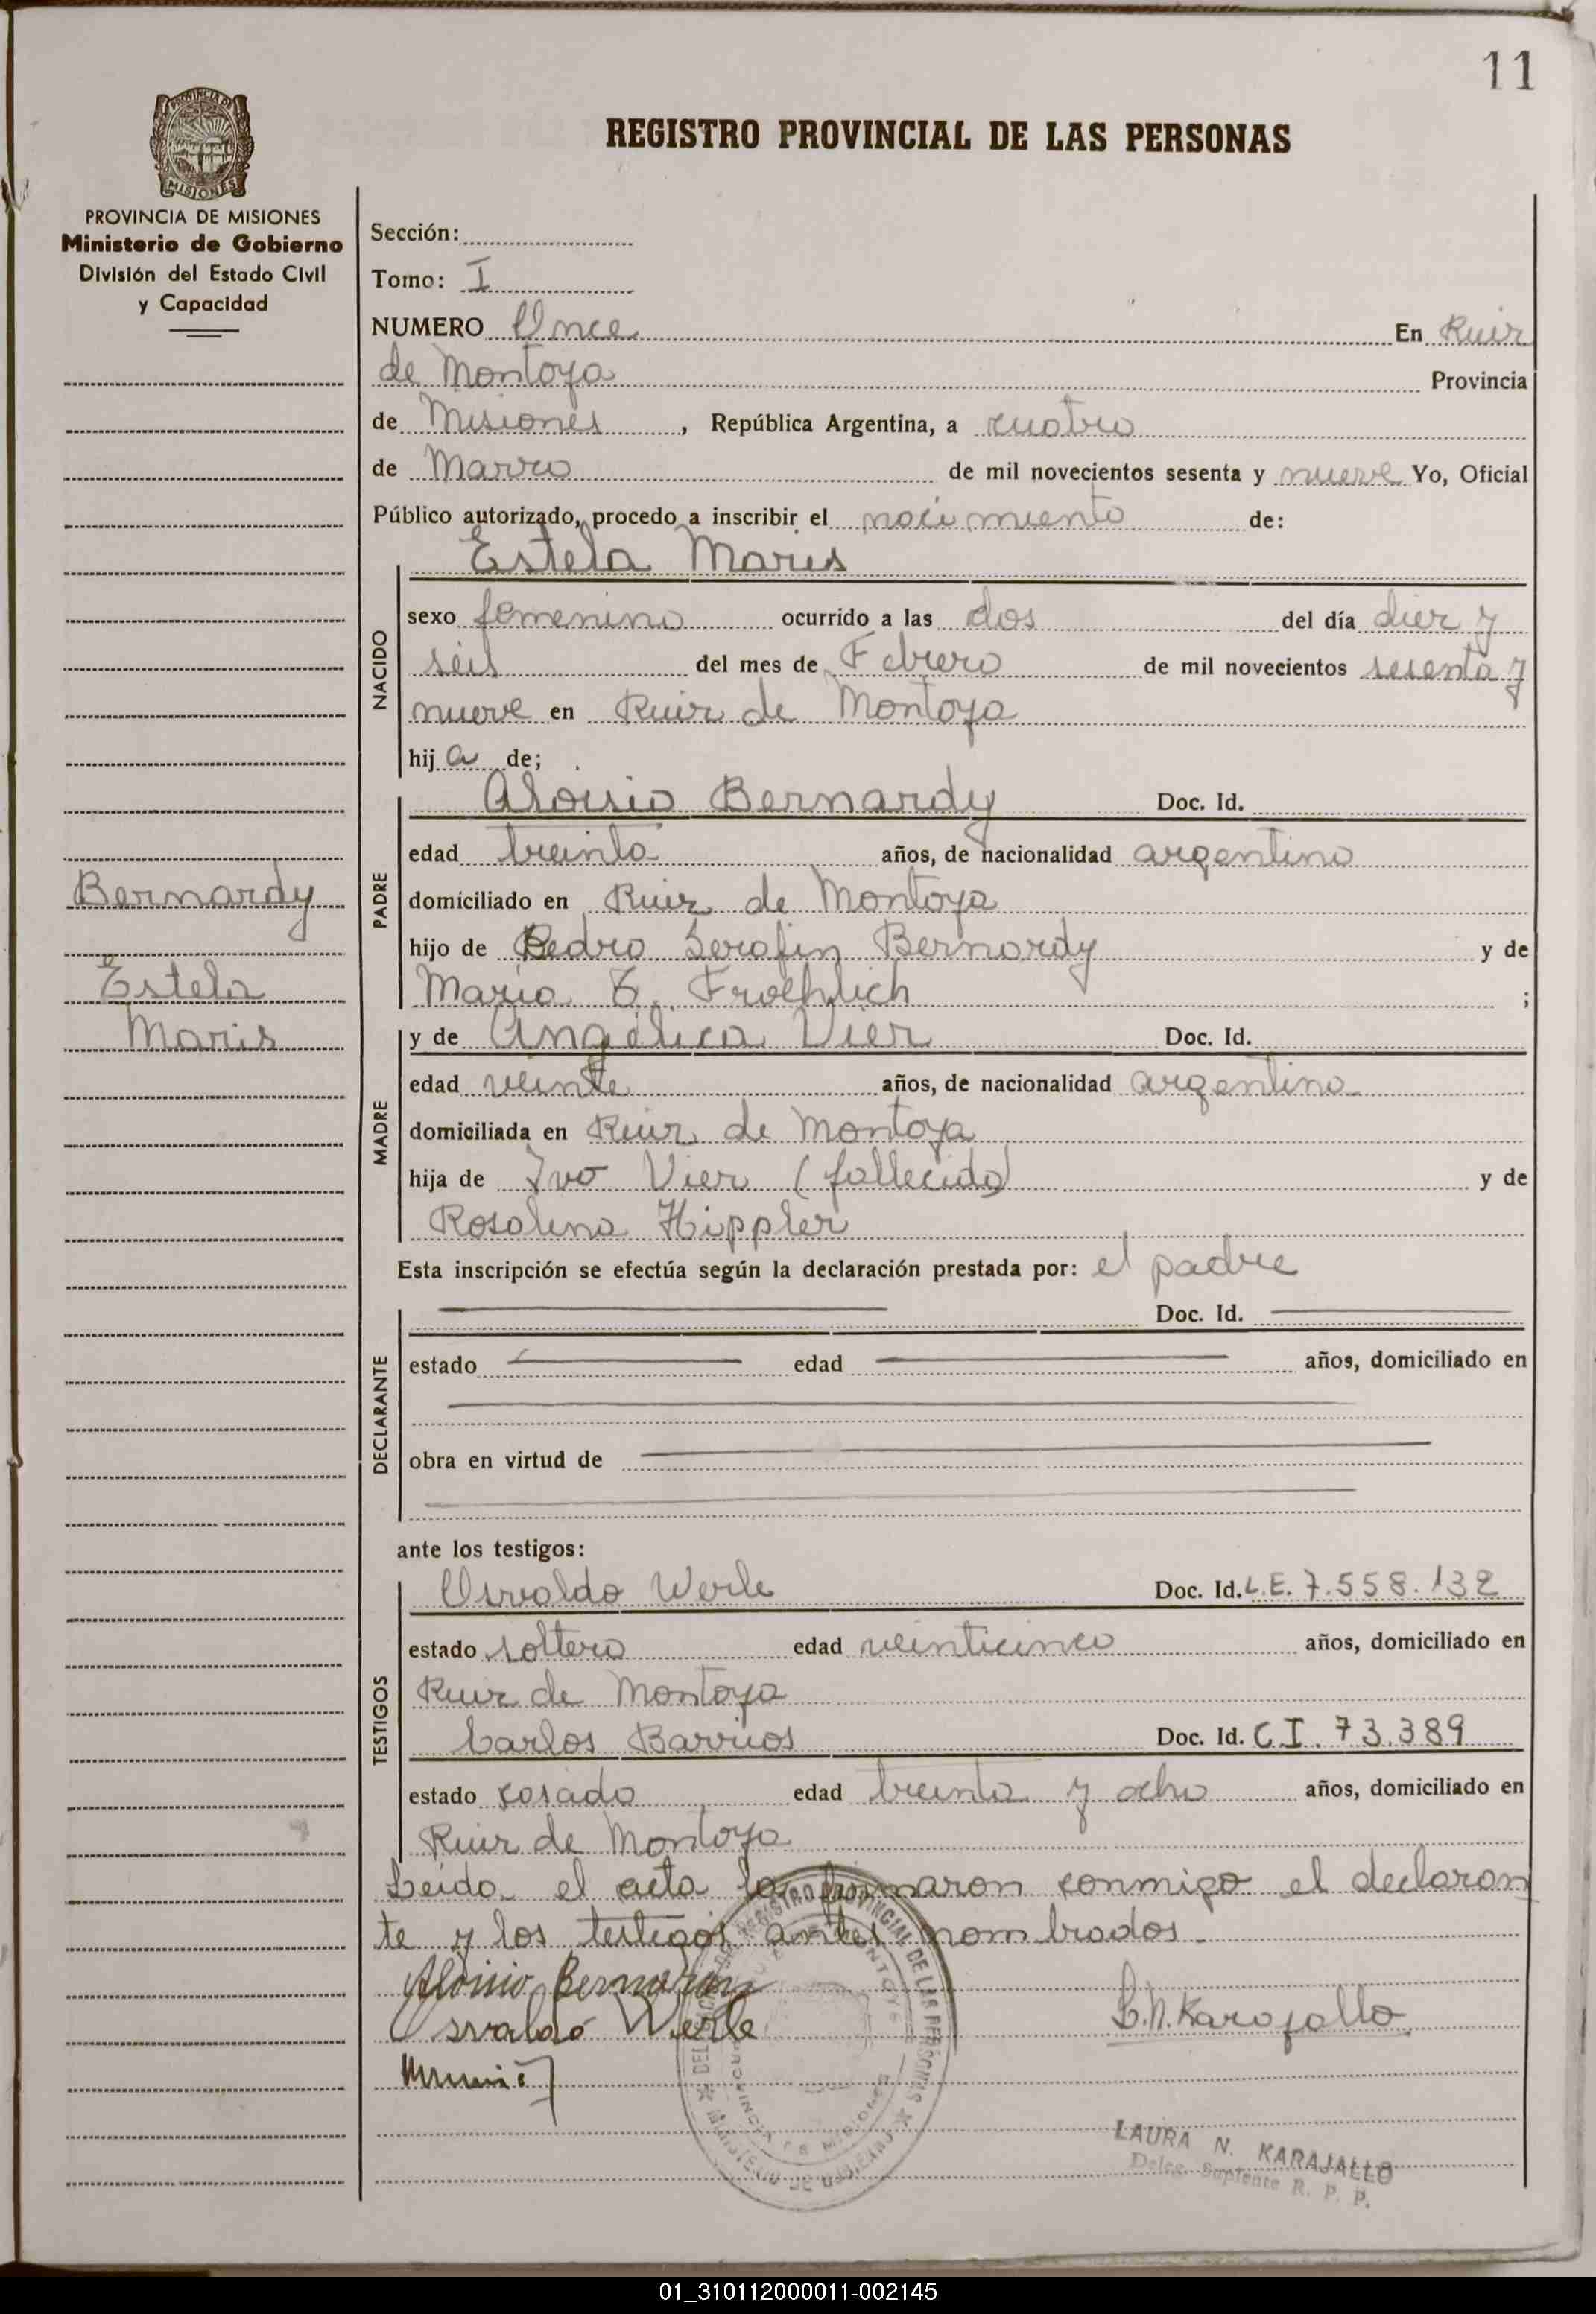 11
REGISTRO PROVINCIAL DE LAS PERSONAS
PROVINCIA DE MISIONES
Ministerio de Gobierno
División del Estado Civil
y Capacidad
Sección:
Tomo: I
NUMERO Once En Ruiz
de Montoya Provincia
de Misiones, República Argentina, a cuatro
de Marzo de mil novecientos sesenta y nueve Yo, Oficial
Público autorizado, procedo a inscribir el nacimiento de:
Estela Maris
NACIDO
sexo femenino ocurrido a las dos del día diez y
seis del mes de Febrero de mil novecientos sesenta y
nueve en Ruiz de Montoya
hija de;
Aloisio Bernardy Doc. Id.
PADRE
edad treinta años, de nacionalidad argentino
domiciliado en Ruiz de Montoya
hijo de Pedro Serafin Bernardy y de
Maria E. Froehlich ;
Bernardy
Estela
Maris
MADRE
y de Angélica Vier Doc. Id.
edad veinte años, de nacionalidad argentina
domiciliada en Ruiz de Montoya
hija de Ivo Vier (fallecido) y de
Rosalina Hippler
Esta inscripción se efectúa según la declaración prestada por: el padre
DECLARANTE
Doc. Id.
estado edad años, domiciliado en
obra en virtud de
ante los testigos:
TESTIGOS
Osvaldo Werle Doc. Id. L.E. 7.558.132
estado soltero edad veinticinco años, domiciliado en
Ruiz de Montoya
Carlos Barrios Doc. Id. C I. 73.389
estado casado edad treinta y ocho años, domiciliado en
Ruiz de Montoya
Leida el acta la firmaron conmigo el declaran
te y los testigos antes nombrados.
Aloisio Bernardy
Osvaldo Werle
L.N. Karajallo
REGISTRO PROVINCIAL DE LAS PERSONAS
PROVINCIA DE MISIONES
LAURA N. KARAJALLO
Deleg. Suplente R. P. P.
01_310112000011-002145